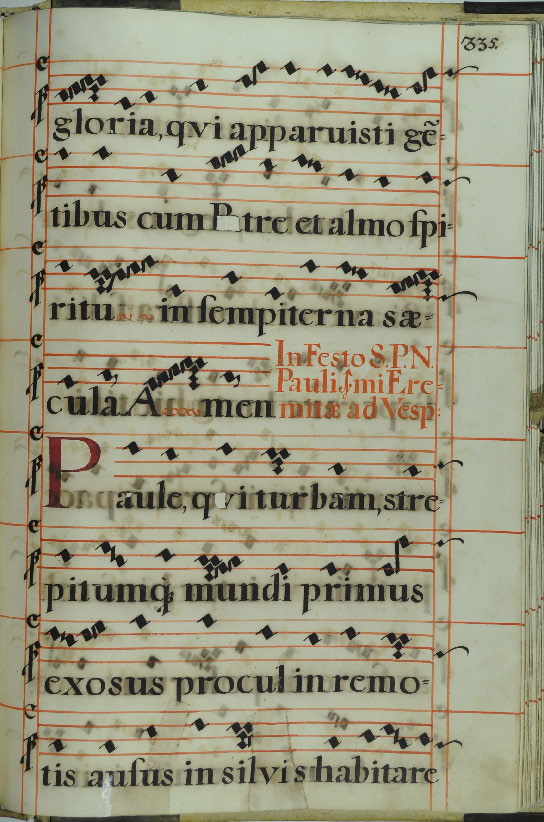 335.
gloria, qvi apparuisti gẽ-
tibus cum Patre et almo ſpi-
ritu in ſempiterna sæ-
cula. Amen
In Festo S. P. N.
Pauli
mitæ ad Vesp.
Paule, qvi turbam, stre-
pitumq̃ mundi primus
exosus procul in remo-
tis auſus in silvis habitare